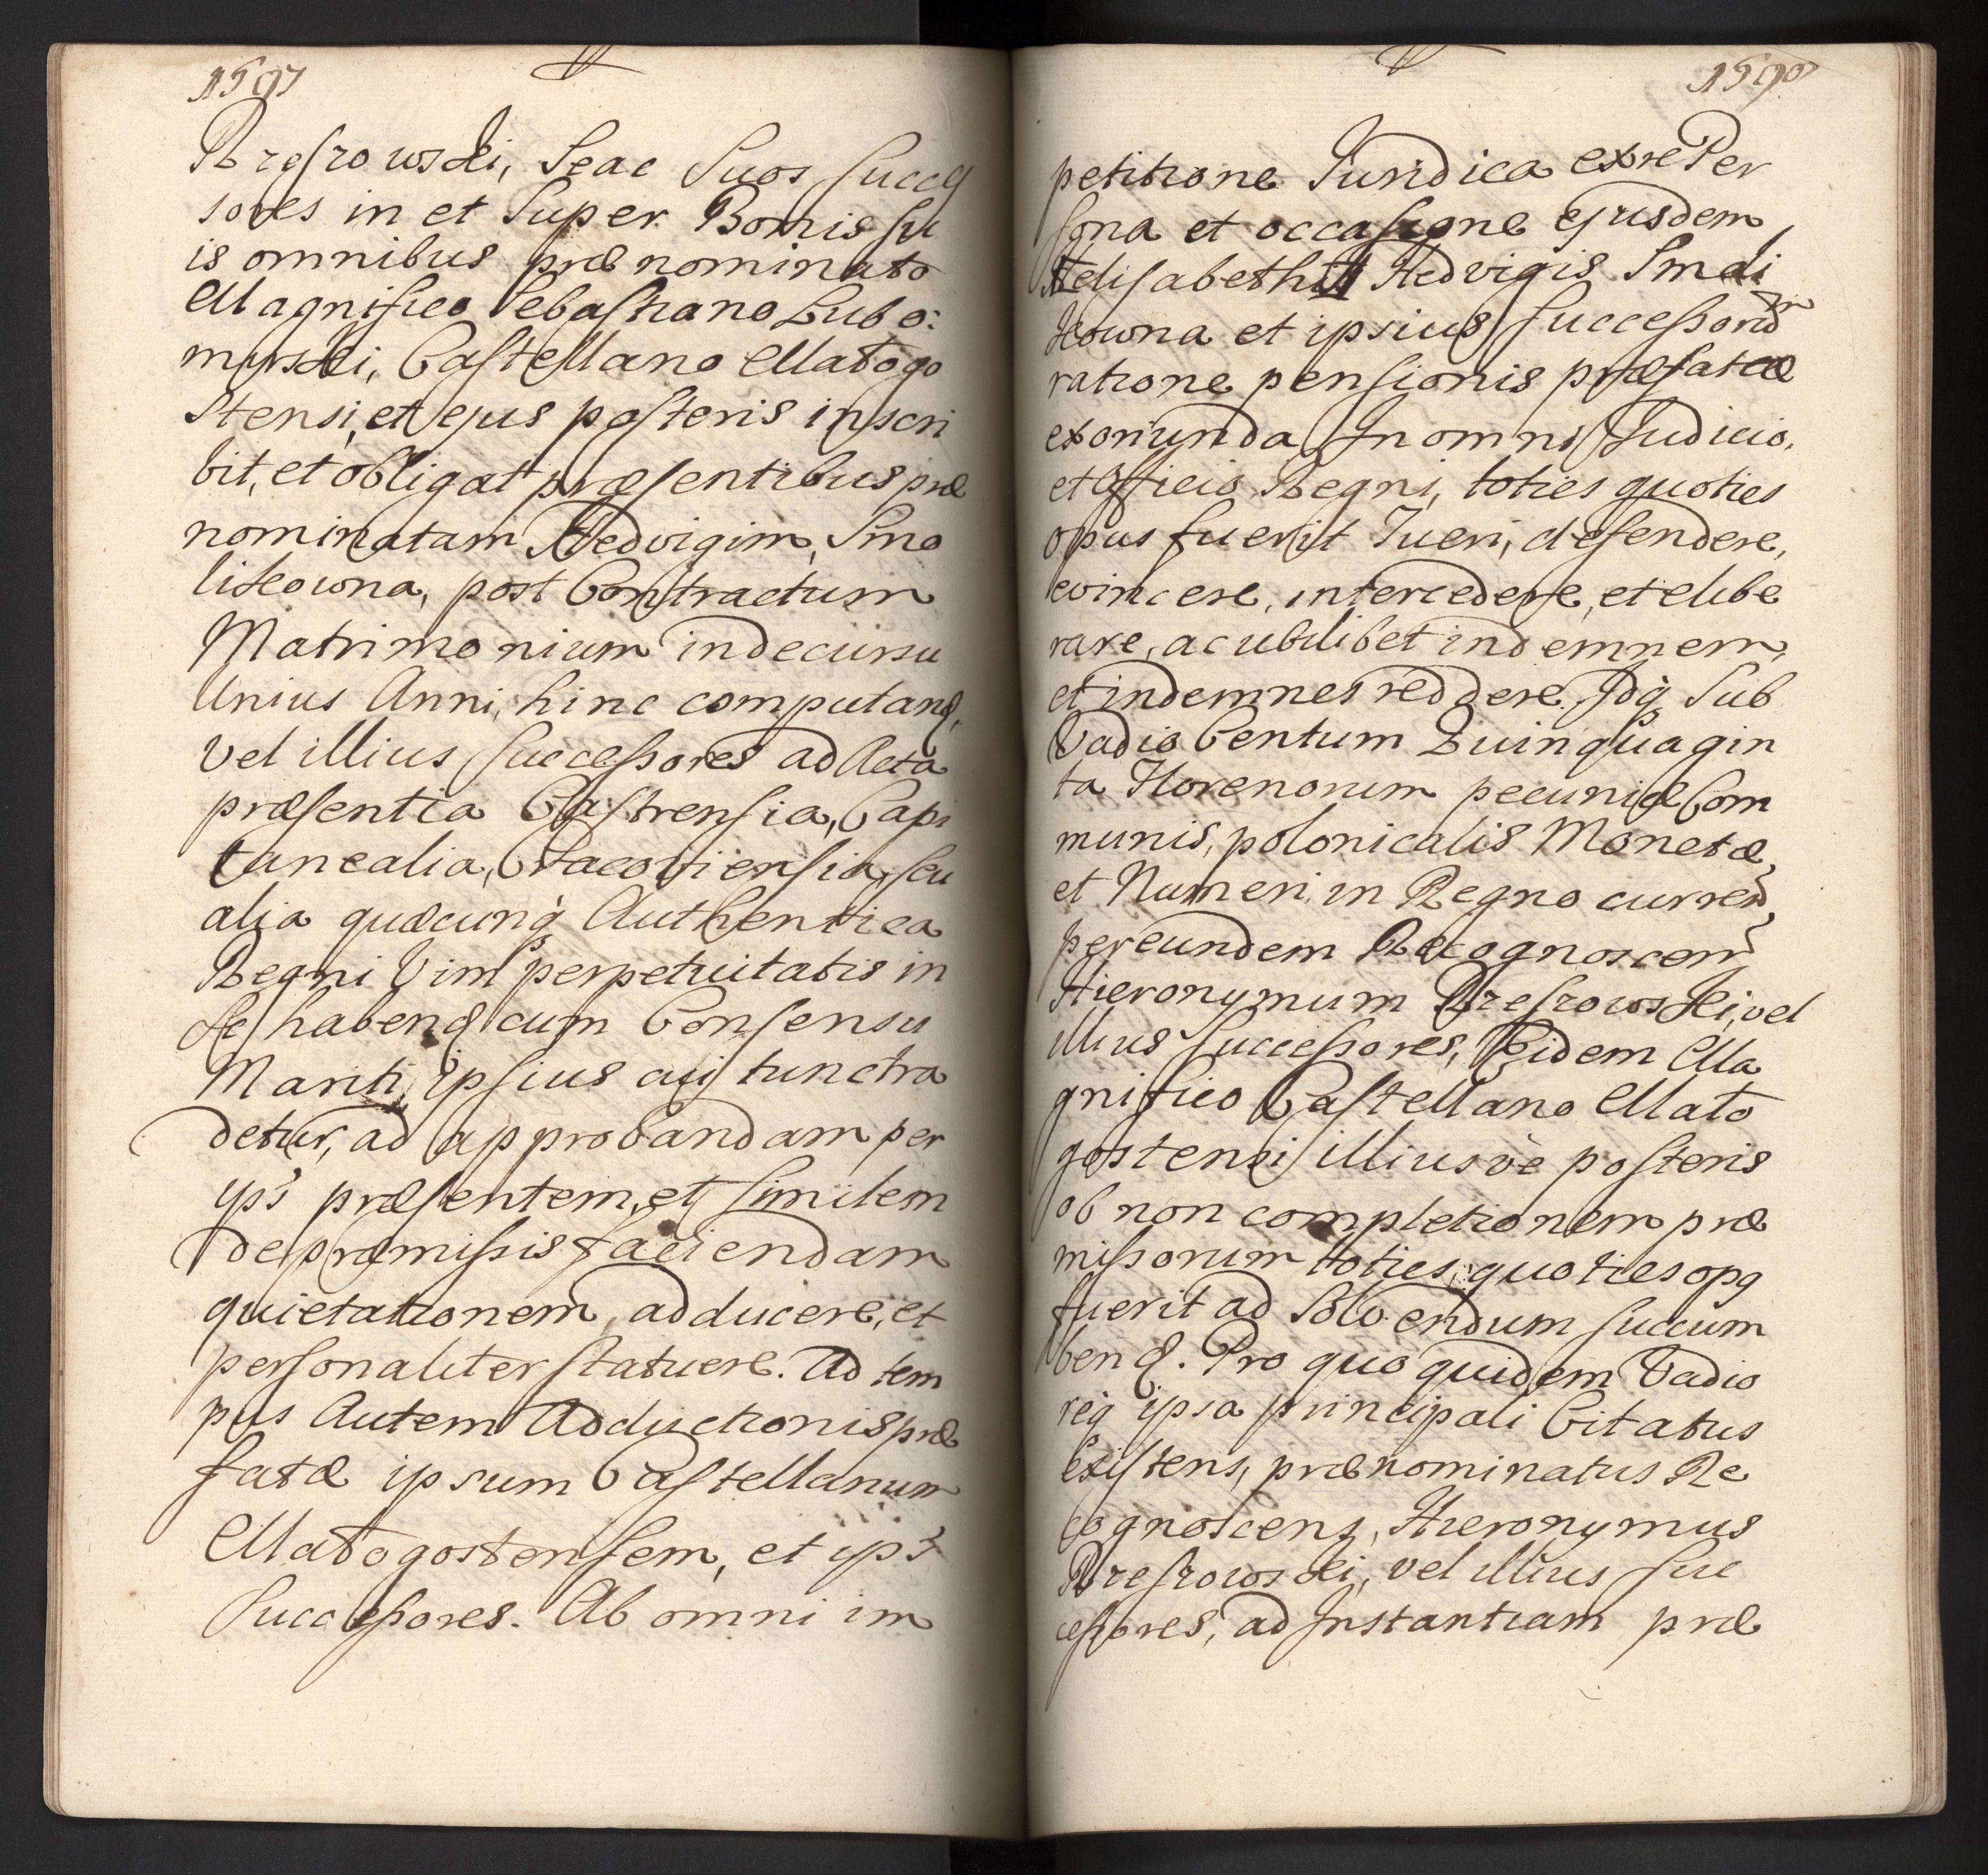 1597
Rzeszowski, Seac Suos Succes
sores in et Super Bonis su
is omnibus prænominato
Magnifico Sebastiano Lubo:
mirski, Castellano Małogo
stensi, et ejus posteris inscri
bit, et obligat præsentibus præ
nominatam Hedvigim, Smo
likowna, post Contractum
Matrimonium in decursu
Unius Anni, hinc computand,
Vel illius Successores ad Acta
præsentia Castrensia, Capi
tanealia, Cracoviensia, seu
alia quæcunq Authentica
Regni Vim perpetuitatis in
se habend cum Consensu
Mariti ipsius cui tunc tra
detur, ad approbandam per
ips præsentem, et similem
de præmissis faciendam
quietationem, adducere, et
personaliter statuere. Ad tem
pus Autem Adductionis præ
fatæ ipsum Castellanum
Małogostensem, et ips
Successores. Ab omni im
1598
petitione Juridica ex re Per
sona et occasione ejusdem
Helisabeth Hedvigis Smoli
kowna et ipsius Successorum
ratione pensionis præfatæ
exoriunda, In omni Judicio,
et Officio Regni, toties quoties
opus fuerit Tueri, defendere,
evincere, intercedere, et elibe
rare, ac ubilibet indemnem,
et indemnes reddere. Idq Sub
Vadio Centum Quinquagin
ta Florenorum pecuniæ Com
munis, polonicalis Monetæ,
et Numeri in Regno curren
per eundem Recognoscen
Hieronymum Rzeszowski, vel
illius Successores, Eidem Ma
gnifico Castellano Mało
gostensi illiusve posteris
ob non completionem præ
missorum toties quoties opq
fuerit ad Solvendum succum
bend. Pro quo quidem Vadio
req ipsa principali Citatus
Existens, prænominatus Re
cognoscens, Hieronymus
Rzeszowski, vel illius Suc
cessores, ad Instantiam præ